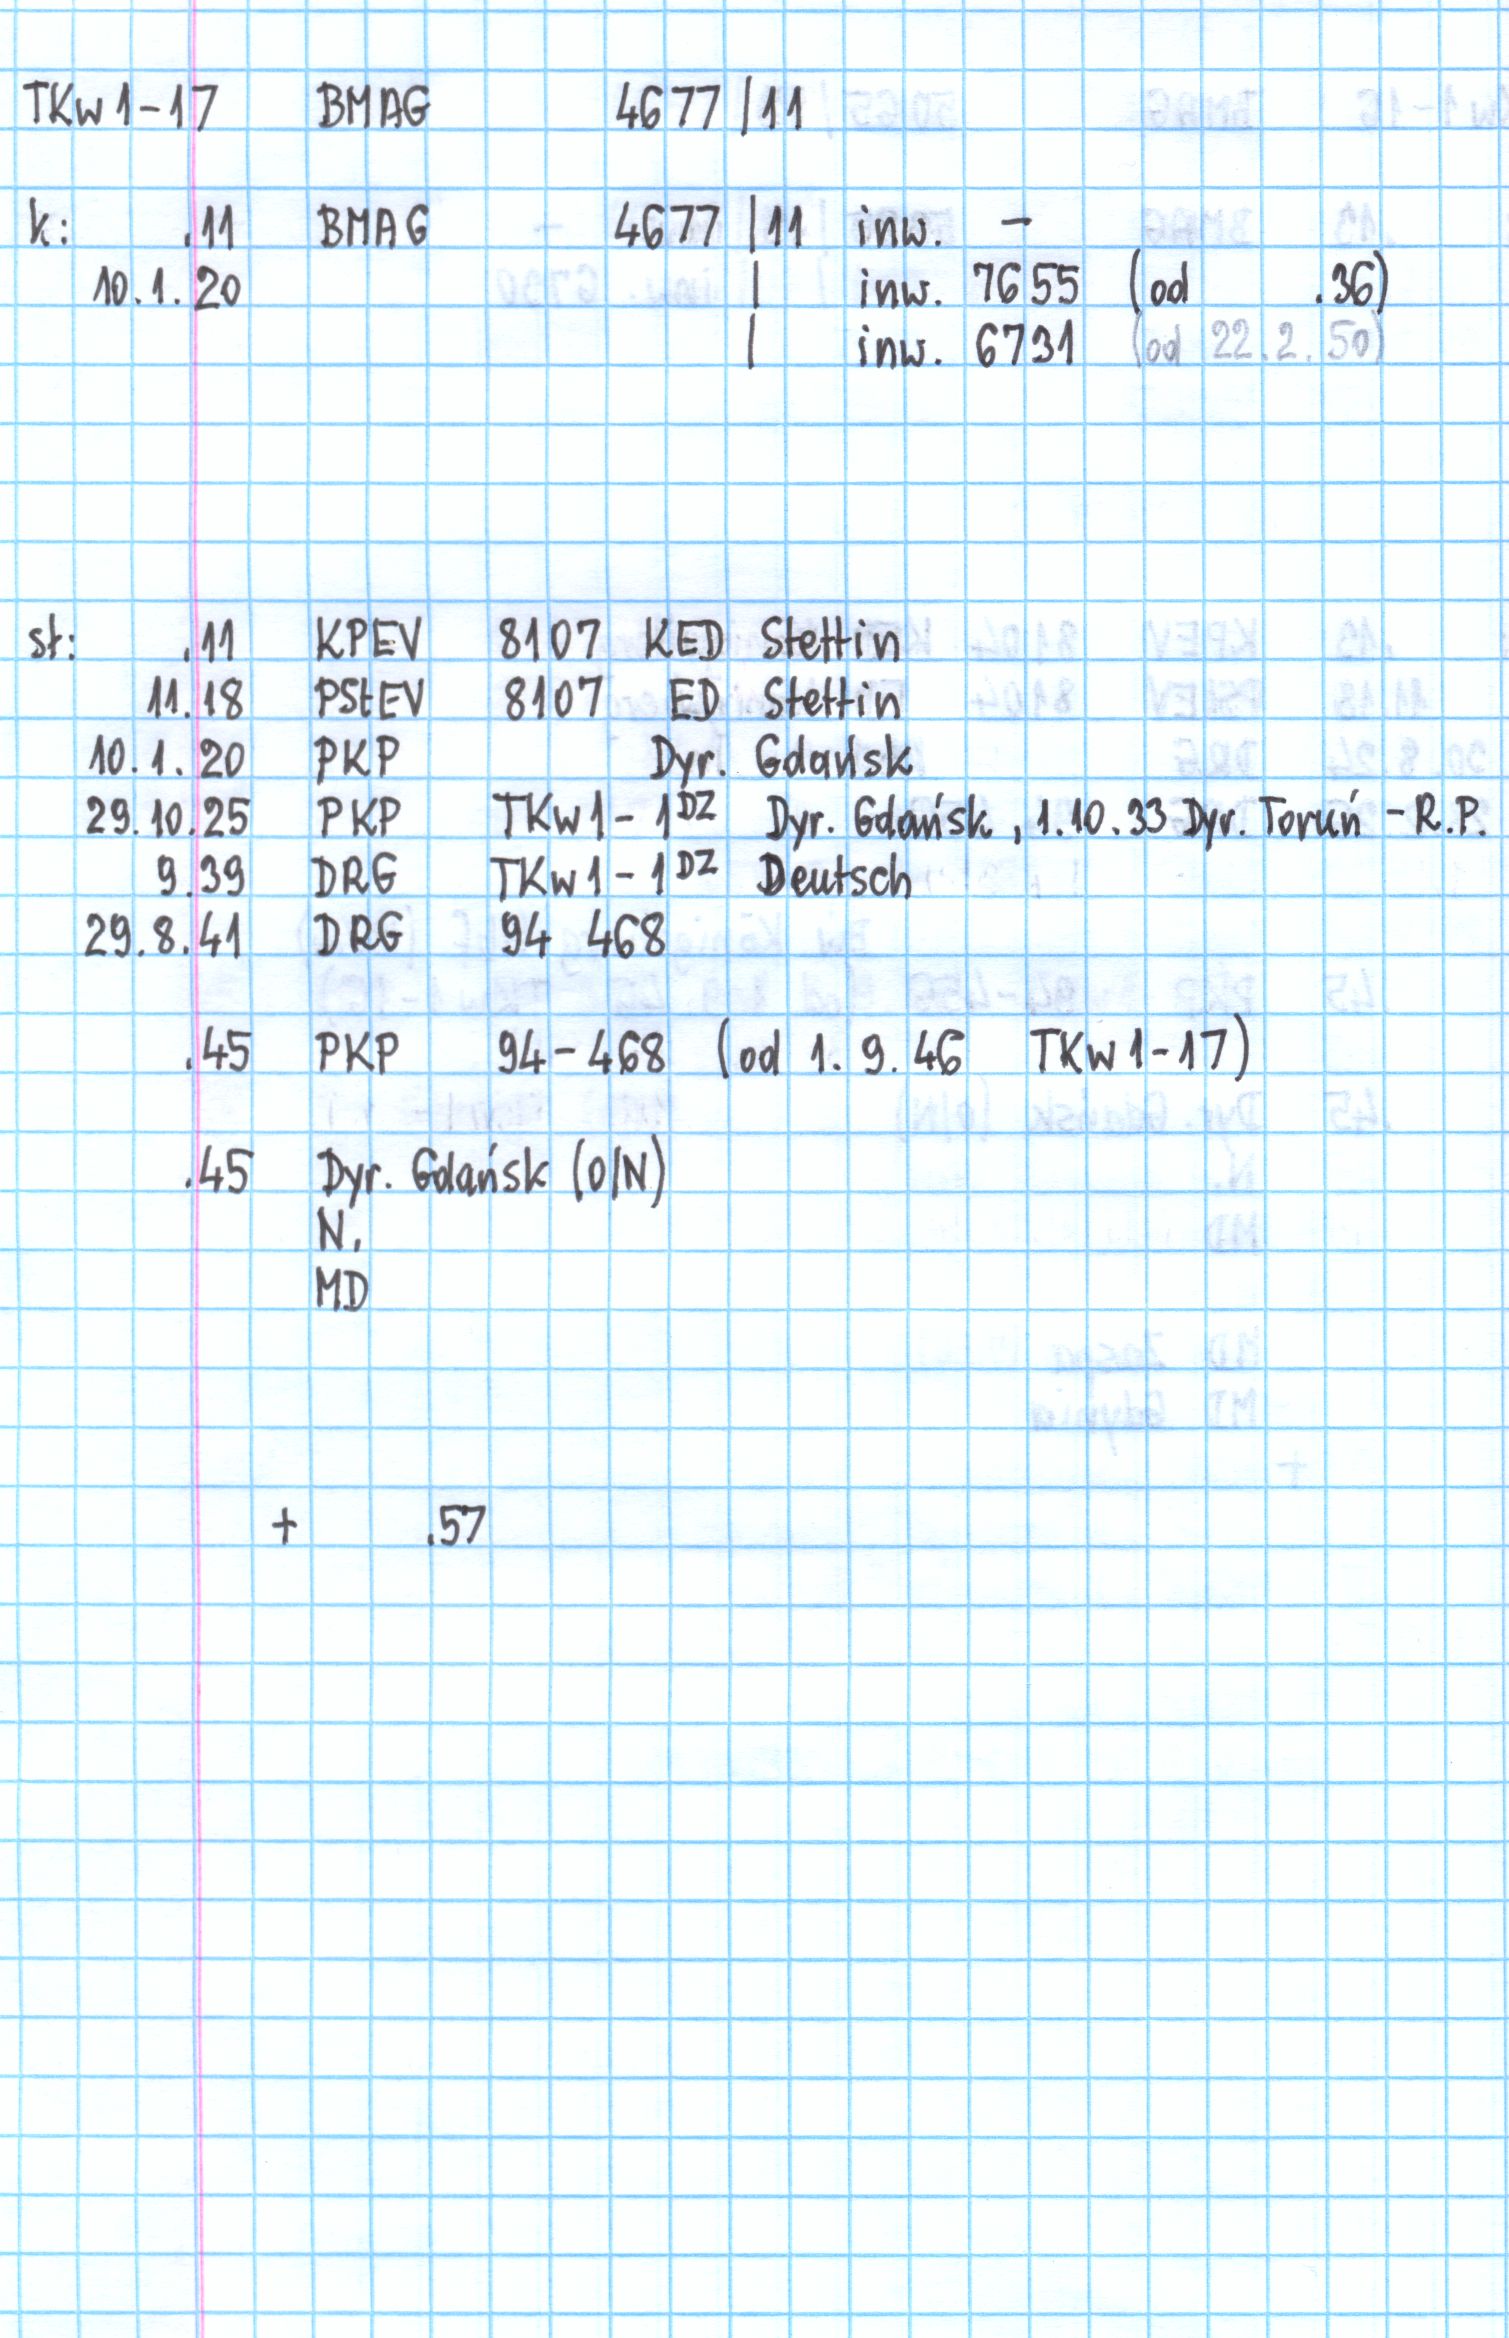 TKw1-17 BMAG 4677/11
k: .11 BMAG 4677/11 inw. -
10.1.20 / inw. 7655 (od .36)
/ inw. 6731 (od 22.2.50)
st: .11 KPEV 8107 KED Stettin
11.18 PStEV 8107 ED Stettin
10.1.20 PKP Dyr. Gdańsk
29.10.25 PKP TKw1-1DZ Dyr. Gdańsk, 1.10.33 Dyr. Toruń - R.P.
9.39 DRG TKw1-1DZ Deutsch
29.8.41 DRG 94 468
.45 PKP 94-468 (od 1.9.46 TKw1-17)
.45 Dyr. Gdańsk (O/N)
N.
MD
+ .57